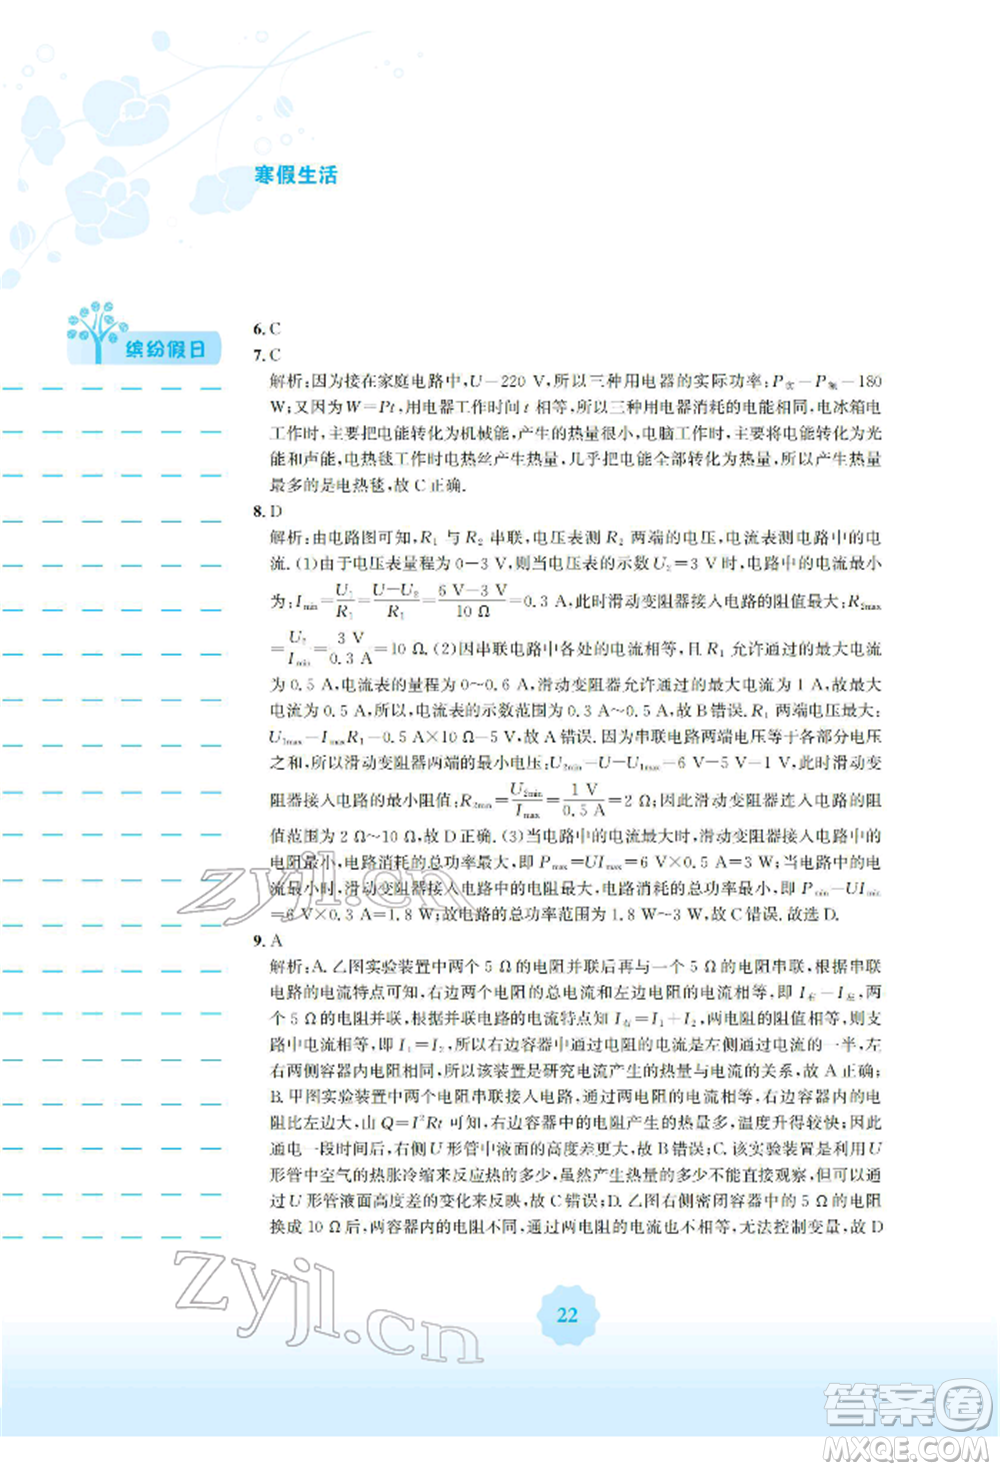 寒假生活
缤纷假日
6. C
7. C
解析:因为接在家庭电路中,U=220 V,所以三种用电器的实际功率:P实=P额=180
W;又因为W=Pt,用电器工作时间t相等,所以三种用电器消耗的电能相同,电冰箱电
工作时,主要把电能转化为机械能,产生的热量很小,电脑工作时,主要把电能转化为光
能和声能,电热毯工作时电热丝产生热量,几乎把电能全部转化为热量,所以产生热量
最多的是电热毯,故C正确.
8. D
解析:由电路图可知,R₁ 与 R₂ 串联,电压表测R₂ 两端的电压,电流表测电路中的电
流.(1)由于电压表量程为0~3 V,则当电压表的示数U₂=3 V时,电路中的电流最小
为:Imin=U₁/R₁=(U-U₂)/R₁=(6 V-3 V)/10 Ω=0.3 A,此时滑动变阻器接入电路的阻值最大;R2max
=U₂/Imin=3 V/0.3 A=10 Ω.(2)因串联电路中各处的电流相等,且R₁ 允许通过的最大电流
为0.5 A,电流表的量程为0~0.6 A,滑动变阻器允许通过的最大电流为1 A,故最大
电流为0.5 A,所以,电流表的示数范围为0.3 A~0.5 A,故B错误.R₁ 两端电压最大:
U1max=ImaxR₁=0.5 A×10 Ω=5 V,故A错误.因为串联电路两端电压等于各部分电压
之和,所以滑动变阻器两端的最小电压:U2min=U-U1max=6 V-5 V=1 V,此时滑动变
阻器接入电路的最小阻值:R2min=U2min/Imax=1 V/0.5 A=2 Ω;因此滑动变阻器连入电路的阻
值范围为2 Ω~10 Ω,故D正确.(3)当电路中的电流最大时,滑动变阻器接入电路中的
电阻最小,电路消耗的总功率最大,即Pmax=UImax=6 V×0.5 A=3 W;当电路中的电
流最小时,滑动变阻器接入电路中的电阻最大,电路消耗的电功率最小,即Pmin=UImin
=6 V×0.3 A=1.8 W;故电路的总功率范围为1.8 W~3 W,故C错误.故选D.
9. A
解析:A.乙图实验装置中两个5 Ω的电阻并联后再与一个5 Ω的电阻串联,根据串联
电路的电流特点可知,右边两个电阻的总电流和左边电阻的电流相等,即I右=I左,两
个5 Ω电阻并联,根据并联电路的电流特点知I右=I₁+I₂,两电阻的阻值相等,则支
路中电流相等,即I₁=I₂,所以右边容器中通过电阻的电流是左边通过电流的一半,左
右两侧容器内电阻相同,所以该装置是研究电流产生的热量与电流的关系,故A正确;
B.甲图实验装置中两个电阻串联接入电路,右边容器内的电阻
比左边大,由Q=I²Rt可知,右边容器中的电阻产生的热量多,温度升得较快;因此
通电一段时间后,右侧U形管中液面的高度差更大,故B错误;C.该实验装置是利用U
形管中空气的热胀冷缩来反应热的多少,虽然产生热量的多少不能直接观察,但可以通
过U形管液面高度差的变化来反映,故C错误;D.乙图右侧密闭容器中的5 Ω的电阻
换成10 Ω后,两容器内的电阻不同,通过两电阻的电流也不相等,无法控制变量,故D
22
zyjl.cn
Zyjl.cn
答案圈
MXQE.COM